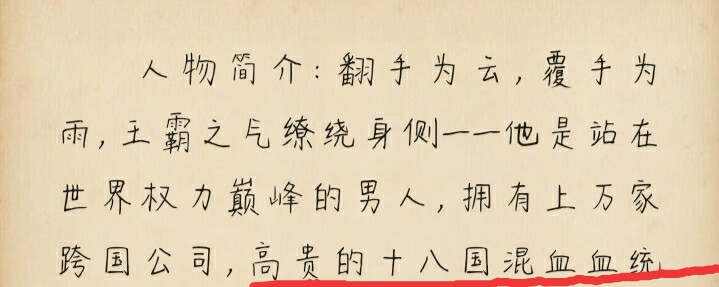 人物简介:翻手为云,覆手为
雨,王霸之气缭绕身侧——他是站在
世界权力巅峰的男人,拥有上万家
跨国公司,高贵的十八国混血血统